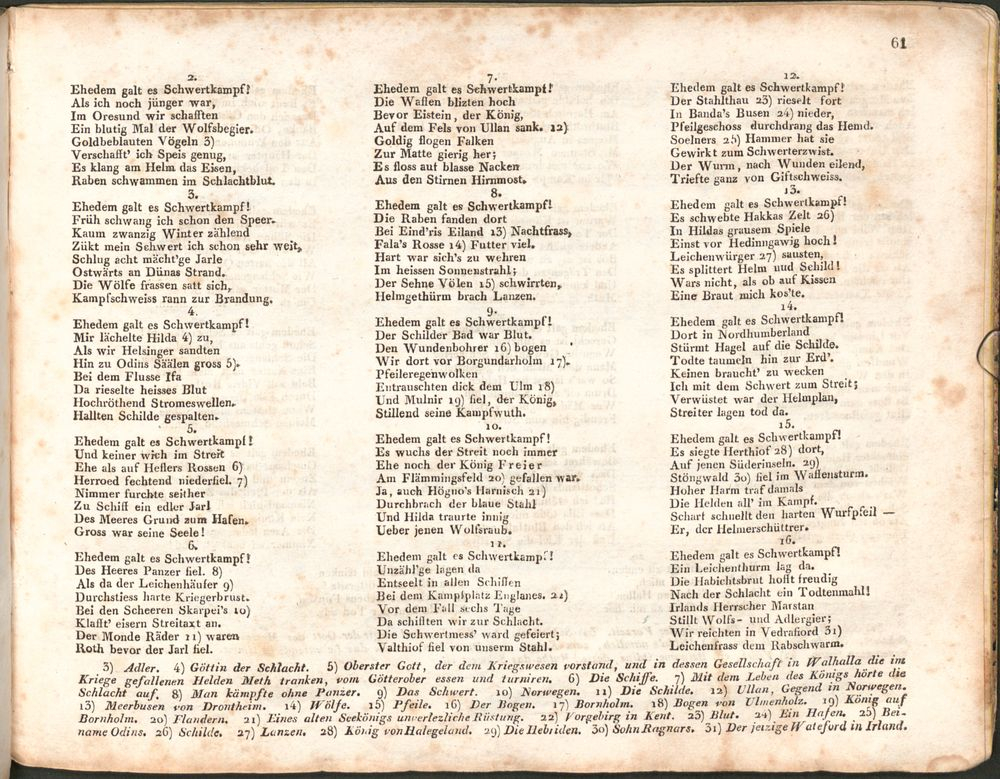 61
2.
Ehedem galt es Schwertkampf!
Als ich noch jünger war,
Im Oresund wir schafften
Ein blutig Mal der Wolfsbegier.
Goldbeblauten Vögeln 3)
Verschafft' ich Speis genug,
Es klang am Helm das Eisen,
Raben schwammen im Schlachtblut.
3.
Ehedem galt es Schwertkampf!
Früh schwang ich schon den Speer.
Kaum zwanzig Winter zählend
Zükt mein Schwert ich schon sehr weit,
Schlug acht mächt'ge Jarle
Ostwärts an Dünas Strand.
Die Wölfe frassen satt sich,
Kampfschweiss rann zur Brandung.
4.
Ehedem galt es Schwertkampf!
Mir lächelte Hilda 4) zu,
Als wir Helsinger sandten
Hin zu Odins Säälen gross 5).
Bei dem Flusse Ifa
Da rieselte heisses Blut
Hochröthend Stromeswellen.
Hallten Schilde gespalten.
5.
Ehedem galt es Schwertkampf!
Und keiner wich im Streit
Ehe als auf Heflers Rossen 6)
Herroed fechtend niederfiel. 7)
Nimmer furchte seither
Zu Schiff ein edler Jarl
Des Meeres Grund zum Hafen.
Gross war seine Seele!
6.
Ehedem galt es Schwertkampf!
Des Heeres Panzer fiel. 8)
Als da der Leichenhäufer 9)
Durchstiess harte Kriegerbrust.
Bei den Scheeren Skarpei's 10)
Klafft' eisern Streitaxt an.
Der Monde Räder 11) waren
Roth bevor der Jarl fiel.
7.
Ehedem galt es Schwertkampf!
Die Waffen blizten hoch
Bevor Eistein, der König,
Auf dem Fels von Ullan sank. 12)
Goldig flogen Falken
Zur Matte gierig her;
Es floss auf blasse Nacken
Aus den Stirnen Hirnmost.
8.
Ehedem galt es Schwertkampf!
Die Raben fanden dort
Bei Eind'ris Eiland 13) Nachtfrass,
Fala's Rosse 14) Futter viel.
Hart war sich's zu wehren
Im heissen Sonnenstrahl;
Der Sehne Völen 15) schwirrten,
Helmgethürm brach Lanzen.
9.
Ehedem galt es Schwertkampf!
Der Schilder Bad war Blut.
Den Wundenbohrer 16) bogen
Wir dort vor Borgundarholm 17).
Pfeileregenwolken
Entrauschten dick dem Ulm 18)
Und Mulnir 19) fiel, der König,
Stillend seine Kampfwuth.
10.
Ehedem galt es Schwertkampf!
Es wuchs der Streit noch immer
Ehe noch der König Freier
Am Flämmingsfeld 20) gefallen war.
Ja, auch Högno's Harnisch 21)
Durchbrach der blaue Stahl
Und Hilda traurte innig
Ueber jenen Wolfsraub.
11.
Ehedem galt es Schwertkampf!
Unzähl'ge lagen da
Entseelt in allen Schiffen
Bei dem Kampfplatz Englanes. 22)
Vor dem Fall sechs Tage
Da schifften wir zur Schlacht.
Die Schwertmess' ward gefeiert;
Valthiof fiel von unserm Stahl.
12.
Ehedem galt es Schwertkampf!
Der Stahlthau 23) rieselt fort
In Banda's Busen 24) nieder,
Pfeilgeschoss durchdrang das Hemd.
Soelners 25) Hammer hat sie
Gewirkt zum Schwerterzwist.
Der Wurm, nach Wunden eilend,
Triefte ganz von Giftschweiss.
13.
Ehedem galt es Schwertkampf!
Es schwebte Hakkas Zelt 26)
In Hildas grausem Spiele
Einst vor Hedinngawig hoch!
Leichenwürger 27) sausten,
Es splittert Helm und Schild!
Wars nicht, als ob auf Kissen
Eine Braut mich kos'te.
14.
Ehedem galt es Schwertkampf!
Dort in Nordhumberland
Stürmt Hagel auf die Schilde.
Todte taumeln hin zur Erd'.
Keinen braucht' zu wecken
Ich mit dem Schwert zum Streit;
Verwüstet war der Helmplan,
Streiter lagen tod da.
15.
Ehedem galt es Schwertkampf!
Es siegte Herthiof 28) dort,
Auf jenen Süderinseln. 29)
Stöngwald 30) fiel im Waffensturm.
Hoher Harm traf damals
Die Helden all' im Kampf.
Scharf schnellt den harten Wurfpfeil —
Er, der Helmerschüttrer.
16.
Ehedem galt es Schwertkampf!
Ein Leichenthurm lag da.
Die Habichtsbrut hofft freudig
Nach der Schlacht ein Todtenmahl!
Irlands Herrscher Marstan
Stillt Wolfs- und Adlergier;
Wir reichten in Vedrafiord 31)
Leichenfrass dem Rabschwarm.
3) Adler. 4) Göttin der Schlacht. 5) Oberster Gott, der dem Kriegswesen vorstand, und in dessen Gesellschaft in Walhalla die im
Kriege gefallenen Helden Meth tranken, vom Götterober essen und turniren. 6) Die Schiffe. 7) Mit dem Leben des Königs hörte die
Schlacht auf. 8) Man kämpfte ohne Panzer. 9) Das Schwert. 10) Norwegen. 11) Die Schilde. 12) Ullan, Gegend in Norwegen.
13) Meerbusen von Drontheim. 14) Wölfe. 15) Pfeile. 16) Der Bogen. 17) Bornholm. 18) Bogen von Ulmenholz. 19) König auf
Bornholm. 20) Flandern. 21) Eines alten Seekönigs unverlezliche Rüstung. 22) Vorgebirg in Kent. 23) Blut. 24) Ein Hafen. 25) Bei-
name Odins. 26) Schilde. 27) Lanzen. 28) König von Halegeland. 29) Die Hebriden. 30) Sohn Ragnars. 31) Der jezige Wateford in Irland.